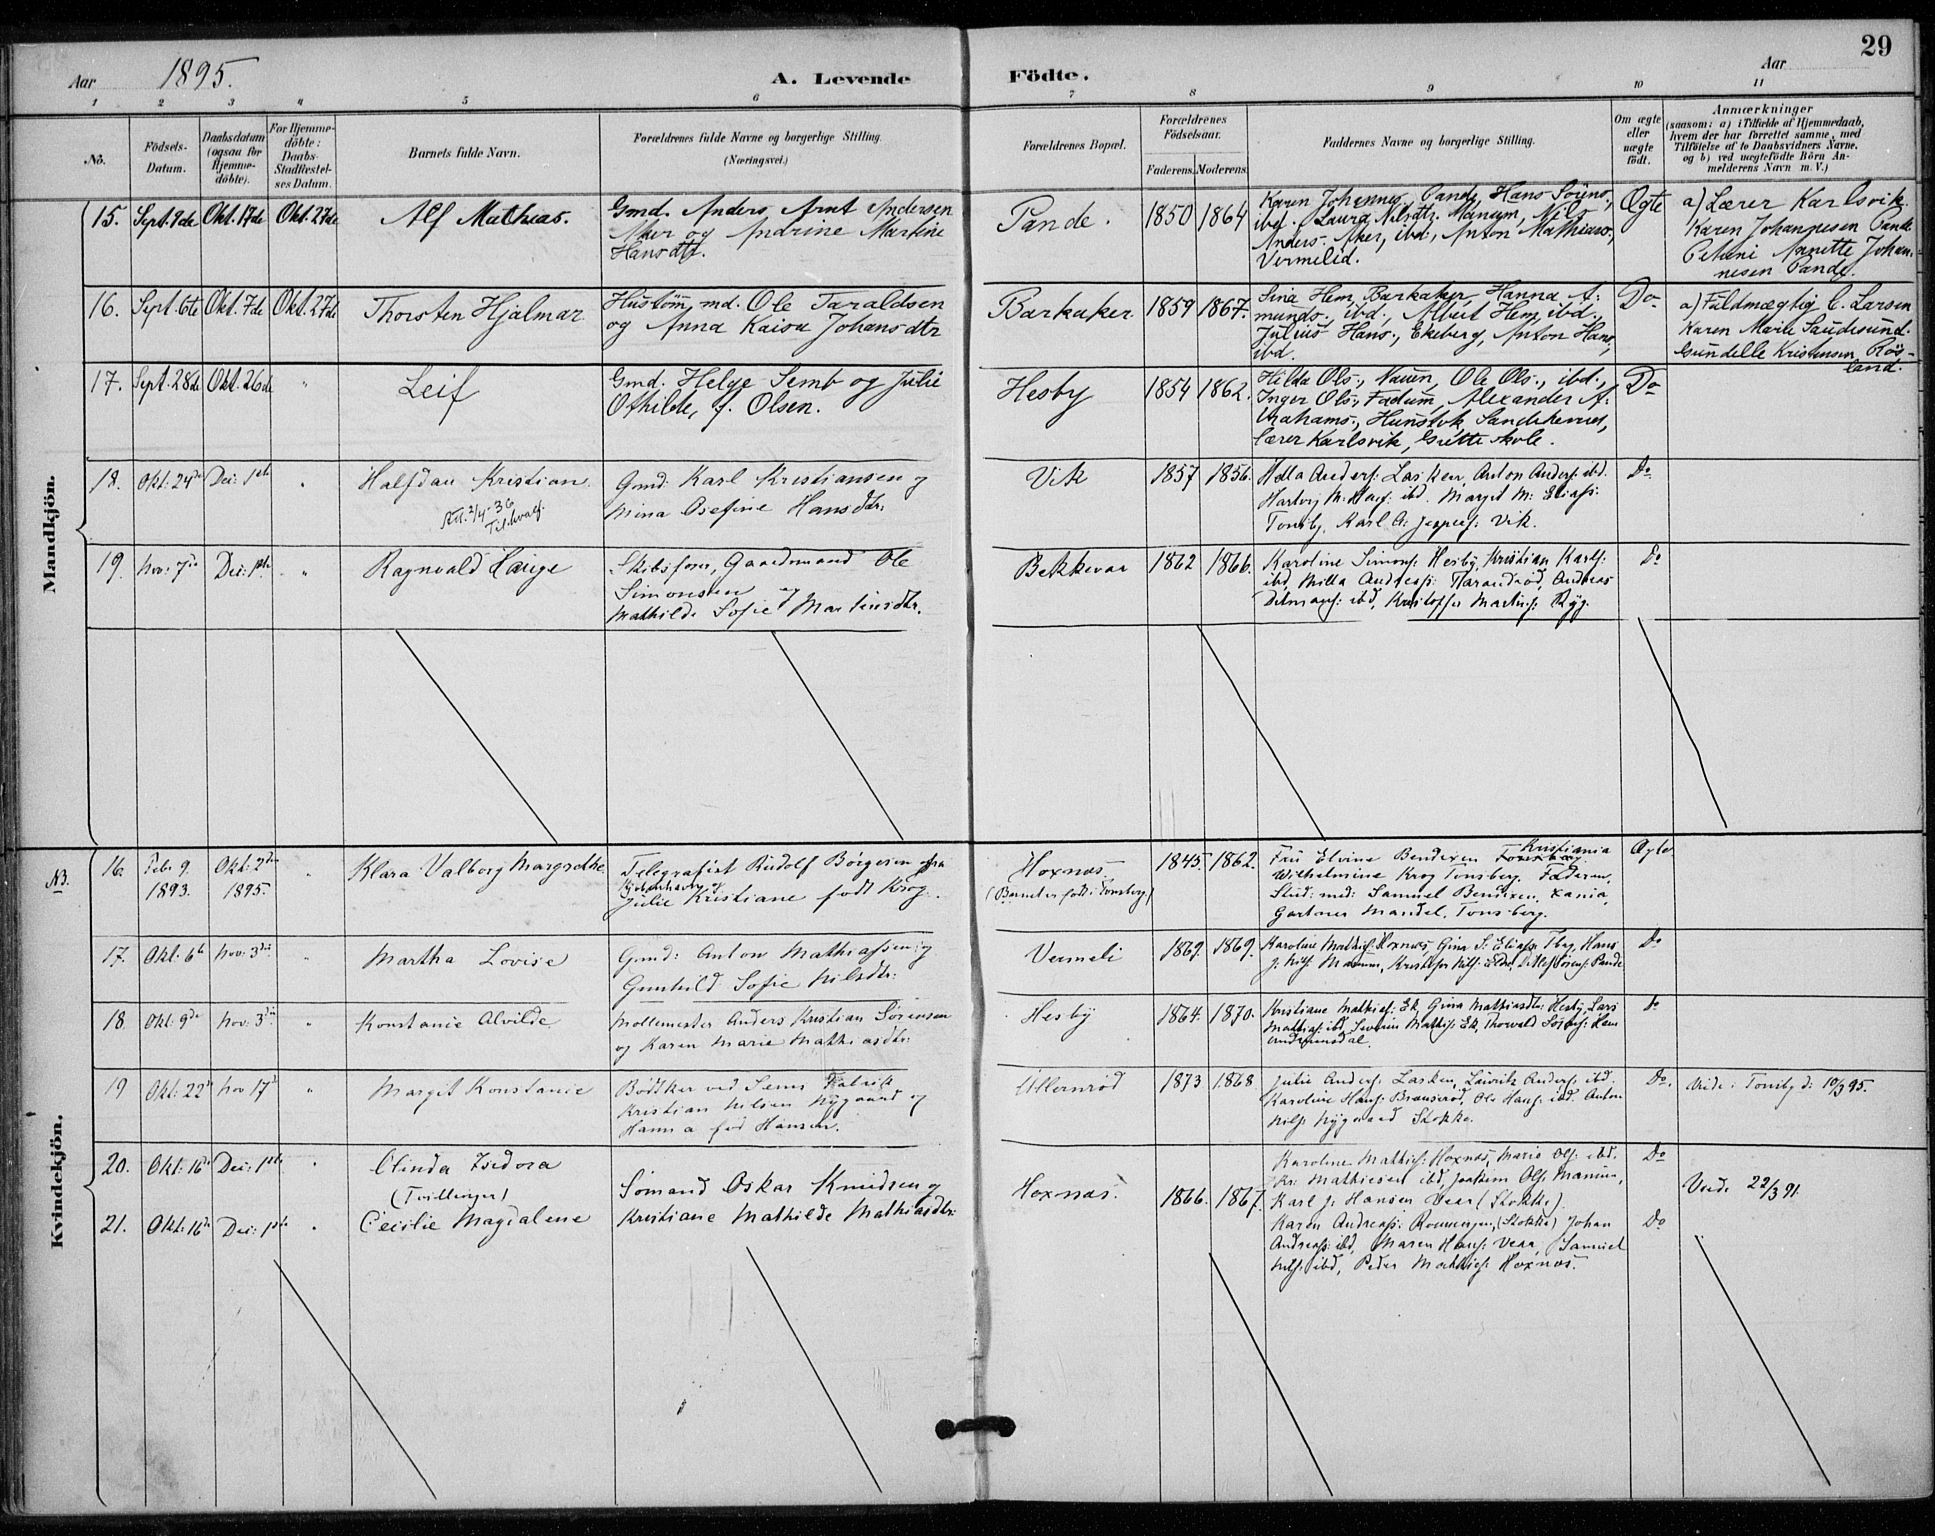 29
Aar 1895. A. Levende Födte. Aar
1 2 3 4 5 6 7 8 9 10 11
No. Födsels-Datum. Daabsdatum (ogsaa for Hjemme-döbte). For Hjemme-döbte: Daabs-Stadfæstel-ses Datum. Barnets fulde Navn. Forældrenes fulde Navne og borgerlige Stilling. (Næringsvei.) Forældrenes Bopæl. Forældrenes Födselsaar. Faderens. Moderens. Faddernes Navne og borgerlige Stilling. Om ægte eller uægte födt. Anmærkninger (saasom: a) i Tilfælde af Hjemmedaab, hvem der har forrettet samme, med Tilföielse af to Daabsvidners Navne, og b) ved uægtefödte Börn An-melderens Navn m. V.)
Mandkjön.
15. Sept. 9de Okt. 17de Okt. 27de Alf Mathias. Gmd. Anders Arnt Andersen
Aker og Andrine Martine
Hansdtr.
Pande. 1850 1864
Karen Johannes., Pande, Hans Sörens.,
ibd. Laura Nilsdtr. Manum, Nils
Anders. Aker, ibd., Anton Mathias.,
Vermelid.
Ægte
a) Lærer Karlsvik.
Karen Johannesen Pande
Petrini Annette Johan-
nesen Pande.
16. Sept. 6te Okt. 7de Okt. 27de Thorsten Hjalmar Hustömmd. Ole Taraldsen
og Anna Kaisa Johansdtr
Barkaker 1859 1867.
Sina Hem, Barkaker, Hanna A-
munds., ibd., Albert Hem, ibd.,
Julius Hans., Ekeberg, Anton Hans.,
ibd.
Do
a) Fuldmægtig C. Larsen
Karen Marie Saudesund.
Gundelle Kristensen, Rös-
land.
17. Sept. 28de Okt. 26de " Leif Gmd. Helge Semb og Julie
Othilde, f. Olsen.
Hesby 1854 1862.
Hilda Ols., Nauen, Ole Ols., ibd.,
Inger Ols., Fadum, Alexander A-
brahams., Hunstok, Sandeherred,
Lærer Karlsvik, Gretteskole.
Do
18. Okt. 24de Dec: 1ste " Halfdan Kristian Gmd: Karl Kristiansen og
Mina Josefine Hansdtr:
Att. 2/4-36
Vik 1857 1856.
Anders: Lasken, Anton Anders: ibd.
ibd. Margit M: Elias:
Tonsby. Karl A: Jeppes: Vik.
Do
19. Nov: 7de Dec: 1ste " Ragnvald Hauge Skibsfører, Gaardmand Ole
Simonsen og
Mathilde Sofie Martinsdtr.
Bekkevar 1862 1866.
Karoline Simons: Hesby, Kristian Karls:
ibd, Milla Andreas: Tarandrød, Andreas
Ditmans: ibd, Kristoffer Martins: Ryg.
Do
Kvindekjön.
NB. 16. Febr 9. 1893. Okt: 2den 1895. " Klara Valborg Margrethe. Telegrafist Rudolf Börgesen fra
Kjøbenhavn og
Julie Kristiane født Krog.
Hoxnæs 1845. 1862.
(Barnet er født i Tønsberg)
Fru Elvine Bendixen Kristiania
Wilhelmine Krog Tønsberg. Faderen,
Stud: med: Samuel Bendixen, Xania,
Gartner Mandel, Tønsberg.
Ægte
17. Okt. 6te Nov: 3die " Martha Lovise Gmd: Anton Mathiassen og
Gunhild Sofie Nilsdtr:
Vermeli 1869. 1869.
Karoline Mathis: Hoxnæs, Gina S: Elias: Hans
J. Nils: Manum, Kristoffer Nils: Sörens: Pande
Do
18. Okt: 9de Nov: 3die " Konstanse Alvilde Møllemester Anders Kristian Sörensen
og Karen Marie Mathiasdtr:
Hesby 1864. 1870.
Kristiane Mathias: Ek, Gina Mathiasdtr: Hesby, Lars
Mathias: ibd, Severin Mathis: Ek, Thorvald Hem
Do
19 Okt: 22de Nov 17de " Margit Konstanse Bødtker ved Sems Fabrik
Kristian Nilsen Nygaard og
Hanna fød Hansen.
Ullernrød 1873 1868.
Julie Anders. Lasken, Lauritz Anders: ibd.
Karoline Hans: Brauserød, Ole Hans: ibd. Anton
Nils: Nygaard Stokke.
Do. Viede i Tønsbg d: 10/3 95.
20. Okt: 16de Dec: 1ste " Olinda Isidora
(Tvillinger)
Sømand Oskar Knudsen og
Kristiane Mathilde Mathiasdtr:
Hoxnæs. 1866. 1867.
Karoline Mathis: Hoxnæs, Marie Ols: ibd.
Kr: Mathiesen ibd, Joakim Ols: Manum,
Karl J: Hansen Vear (Stokke)
Do
Viede 22/3 91.
21. Okt: 16de Dec: 1ste " Cecilie Magdalene
Karen Andreas: (Stokke) Johan
Andreas: ibd, Maren Hans: Vear, Samuel
Nils: ibd, Peder Mathis: Hoxnæs.
Do